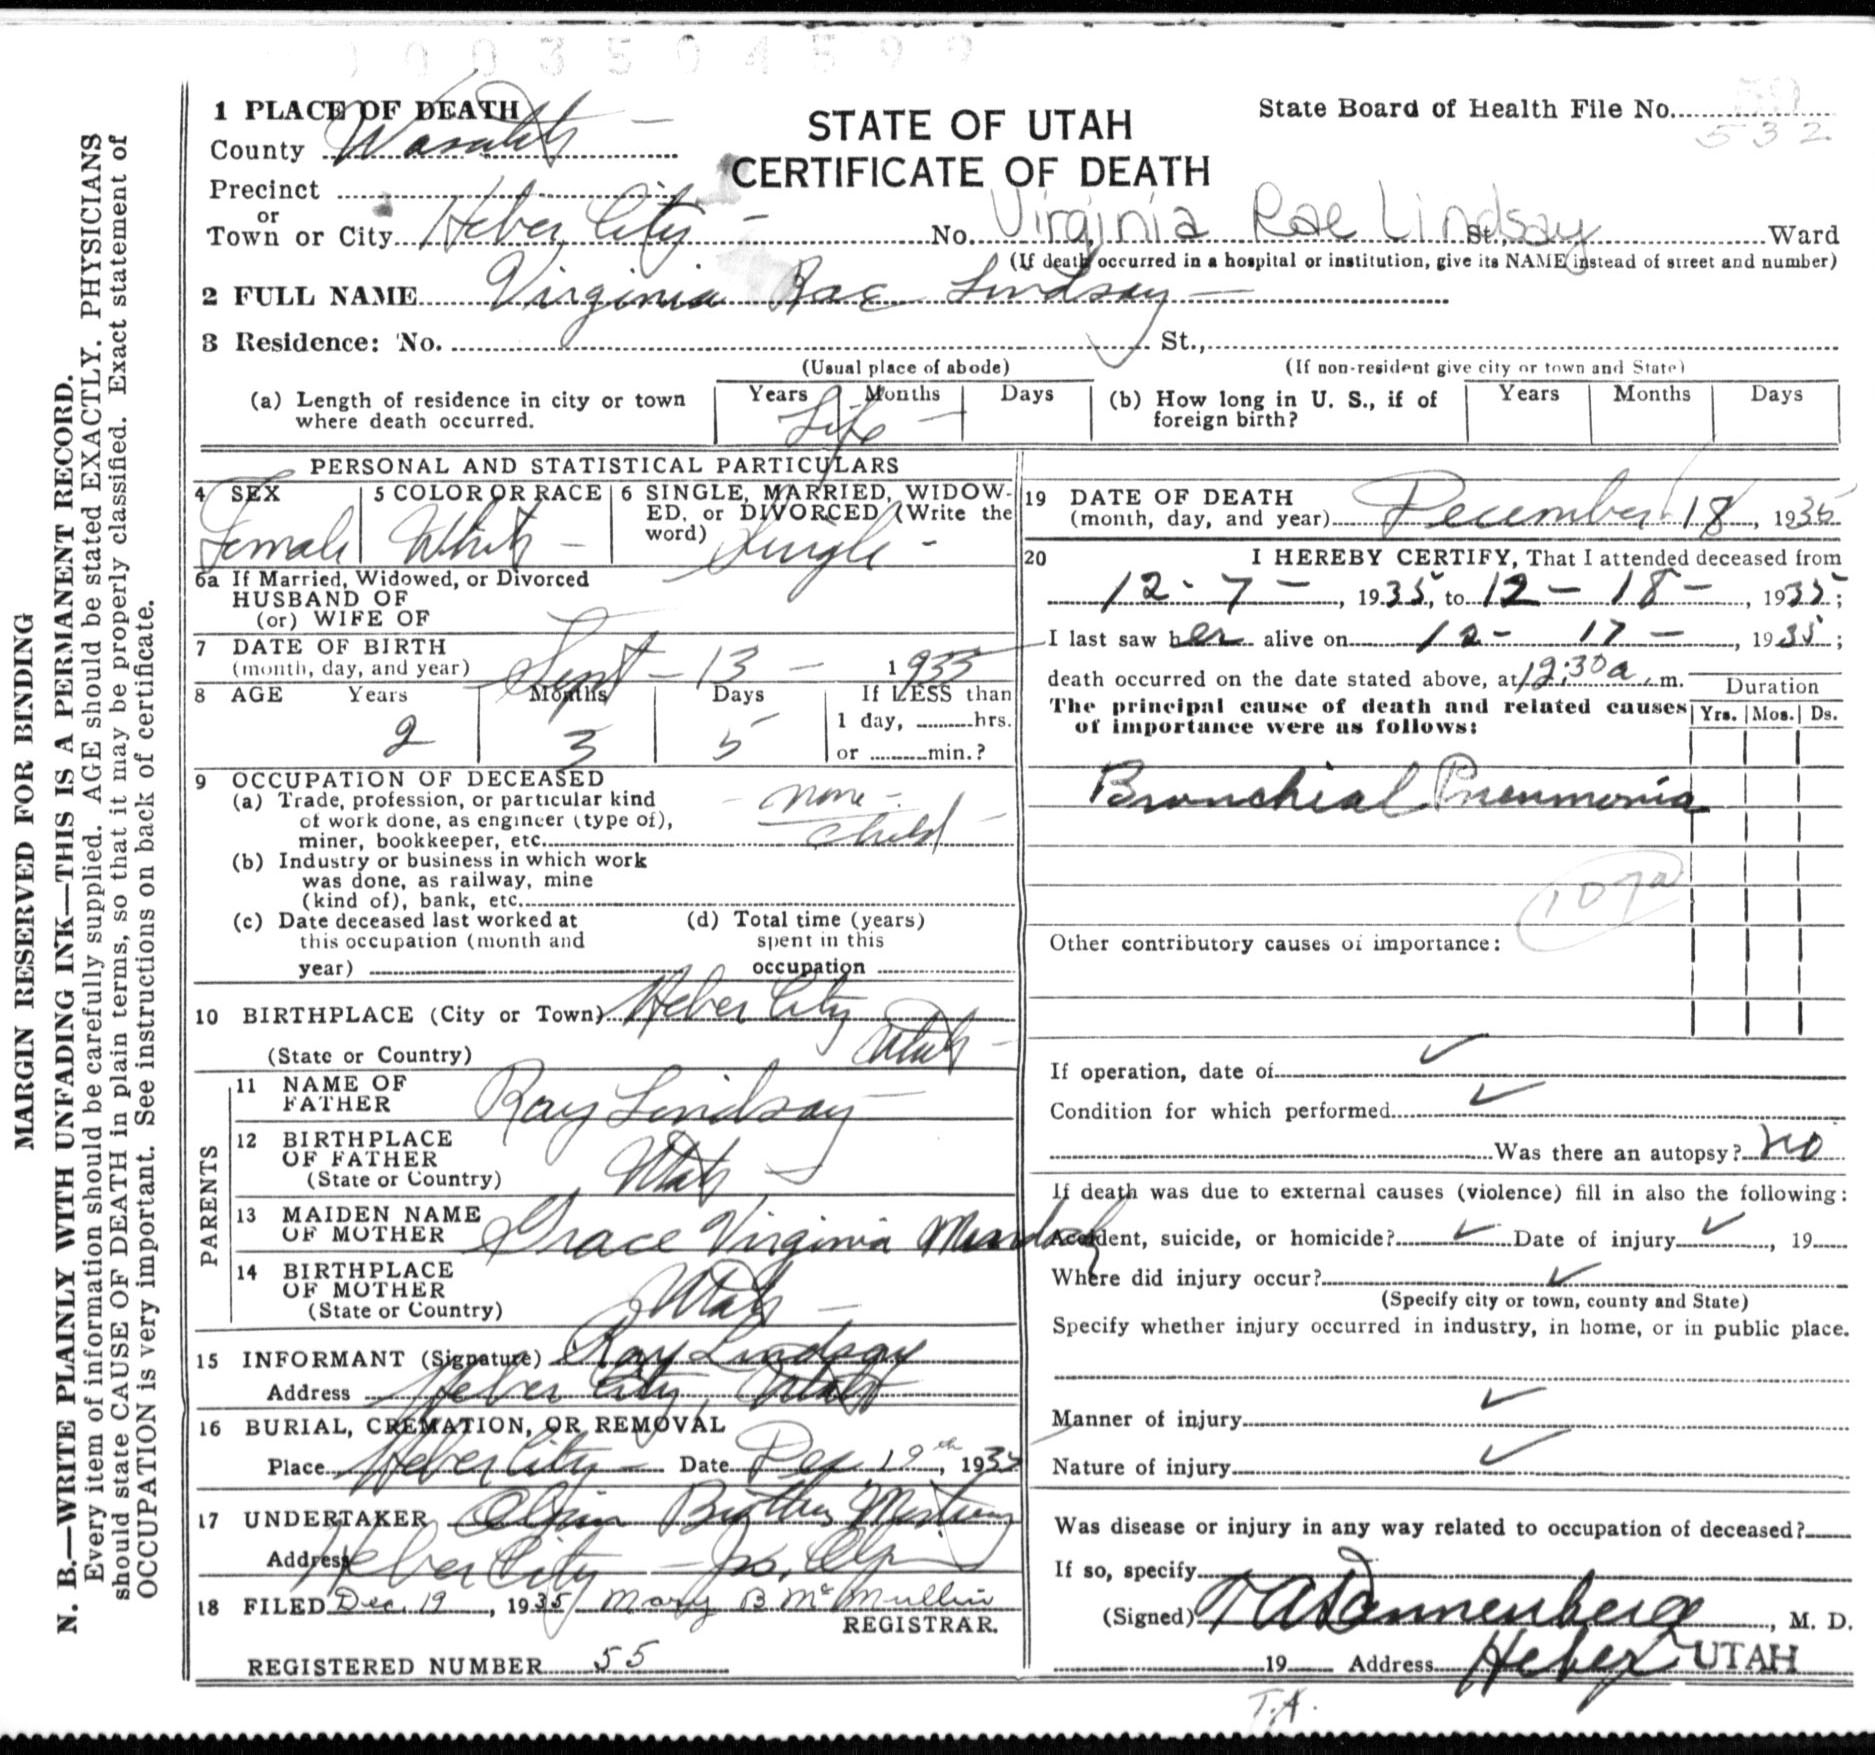 0003504599
MARGIN RESERVED FOR BINDING
N. B.—WRITE PLAINLY WITH UNFADING INK—THIS IS A PERMANENT RECORD.
Every item of information should be carefully supplied. AGE should be stated EXACTLY. PHYSICIANS
should state CAUSE OF DEATH in plain terms, so that it may be properly classified. Exact statement of
OCCUPATION is very important. See instructions on back of certificate.
STATE OF UTAH
CERTIFICATE OF DEATH
State Board of Health File No.
532
1 PLACE OF DEATH
County Wasatch
Precinct
or
Town or City Heber City No. Virginia Rae Lindsay St., Ward
(If death occurred in a hospital or institution, give its NAME instead of street and number)
2 FULL NAME Virginia Rae Lindsay
3 Residence: No. St.,
(Usual place of abode) (If non-resident give city or town and State)
(a) Length of residence in city or town where death occurred. Years Months Days Life
(b) How long in U. S., if of foreign birth? Years Months Days
PERSONAL AND STATISTICAL PARTICULARS
4 SEX Female
5 COLOR OR RACE White
6 SINGLE, MARRIED, WIDOWED, or DIVORCED (Write the word) Single
6a If Married, Widowed, or Divorced
HUSBAND OF
(or) WIFE OF
7 DATE OF BIRTH
(month, day, and year) Sept - 13 - 1933
8 AGE Years Months Days If LESS than
1 day, hrs.
2 3 5 or min.?
9 OCCUPATION OF DECEASED
(a) Trade, profession, or particular kind - none -
of work done, as engineer (type of),
miner, bookkeeper, etc. child
(b) Industry or business in which work
was done, as railway, mine
(kind of), bank, etc.
(c) Date deceased last worked at
this occupation (month and
year)
(d) Total time (years)
spent in this
occupation
10 BIRTHPLACE (City or Town) Heber City
(State or Country) Utah
PARENTS
11 NAME OF FATHER Ray Lindsay
12 BIRTHPLACE OF FATHER
(State or Country) Utah
13 MAIDEN NAME OF MOTHER Grace Virginia Murdoch
14 BIRTHPLACE OF MOTHER
(State or Country) Utah
15 INFORMANT (Signature) Ray Lindsay
Address Heber City, Utah
16 BURIAL, CREMATION, OR REMOVAL
Place Heber City Date Dec 19th, 1935
17 UNDERTAKER Olpin Brothers
Address Heber City
18 FILED Dec. 19, 1935 Mary B McMullin
REGISTRAR.
REGISTERED NUMBER 55
19 DATE OF DEATH
(month, day, and year) December 18, 1935
20 I HEREBY CERTIFY, That I attended deceased from
12 - 7 -, 1935, to 12 - 18 -, 1935;
I last saw her alive on 12 - 17 -, 1935;
death occurred on the date stated above, at 12:30 a. m.
Duration
The principal cause of death and related causes
of importance were as follows:
Yrs. Mos. Ds.
Bronchial Pneumonia
107a
Other contributory causes of importance:
If operation, date of
Condition for which performed
Was there an autopsy? no
If death was due to external causes (violence) fill in also the following:
Accident, suicide, or homicide? Date of injury, 19
Where did injury occur?
(Specify city or town, county and State)
Specify whether injury occurred in industry, in home, or in public place.
Manner of injury
Nature of injury
Was disease or injury in any way related to occupation of deceased?
If so, specify
(Signed) T A Dannenberg, M. D.
19 Address Heber UTAH
T.A.